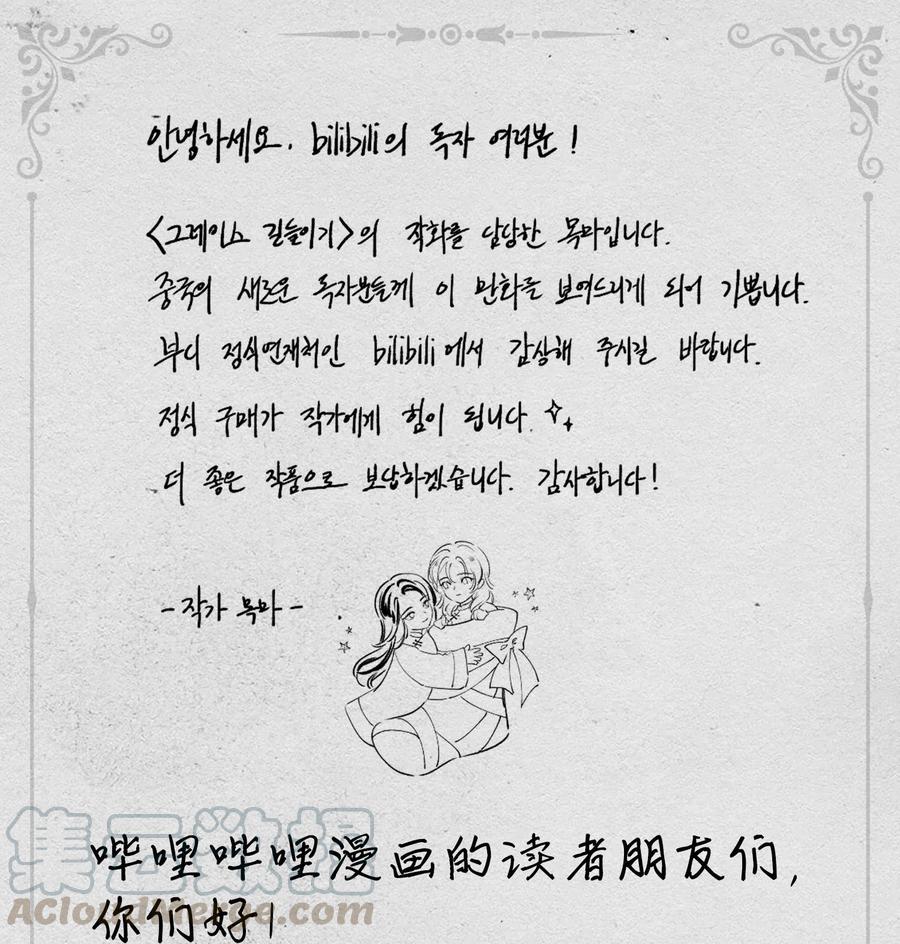 안녕하세요. bilibili의 독자 여러분!
<그레이스 길들이기>의 작화를 담당한 목마입니다.
중국의 새로운 독자분들께 이 만화를 보여드리게 되어 기쁩니다.
부디 정식연재처인 bilibili에서 감상해 주시길 바랍니다.
정식 구매가 작가에게 힘이 됩니다.
더 좋은 작품으로 보답하겠습니다. 감사합니다!
-작가 목마-
哔哩哔哩漫画的读者朋友们,
你们好!
集云数据
ACloudMerge.com